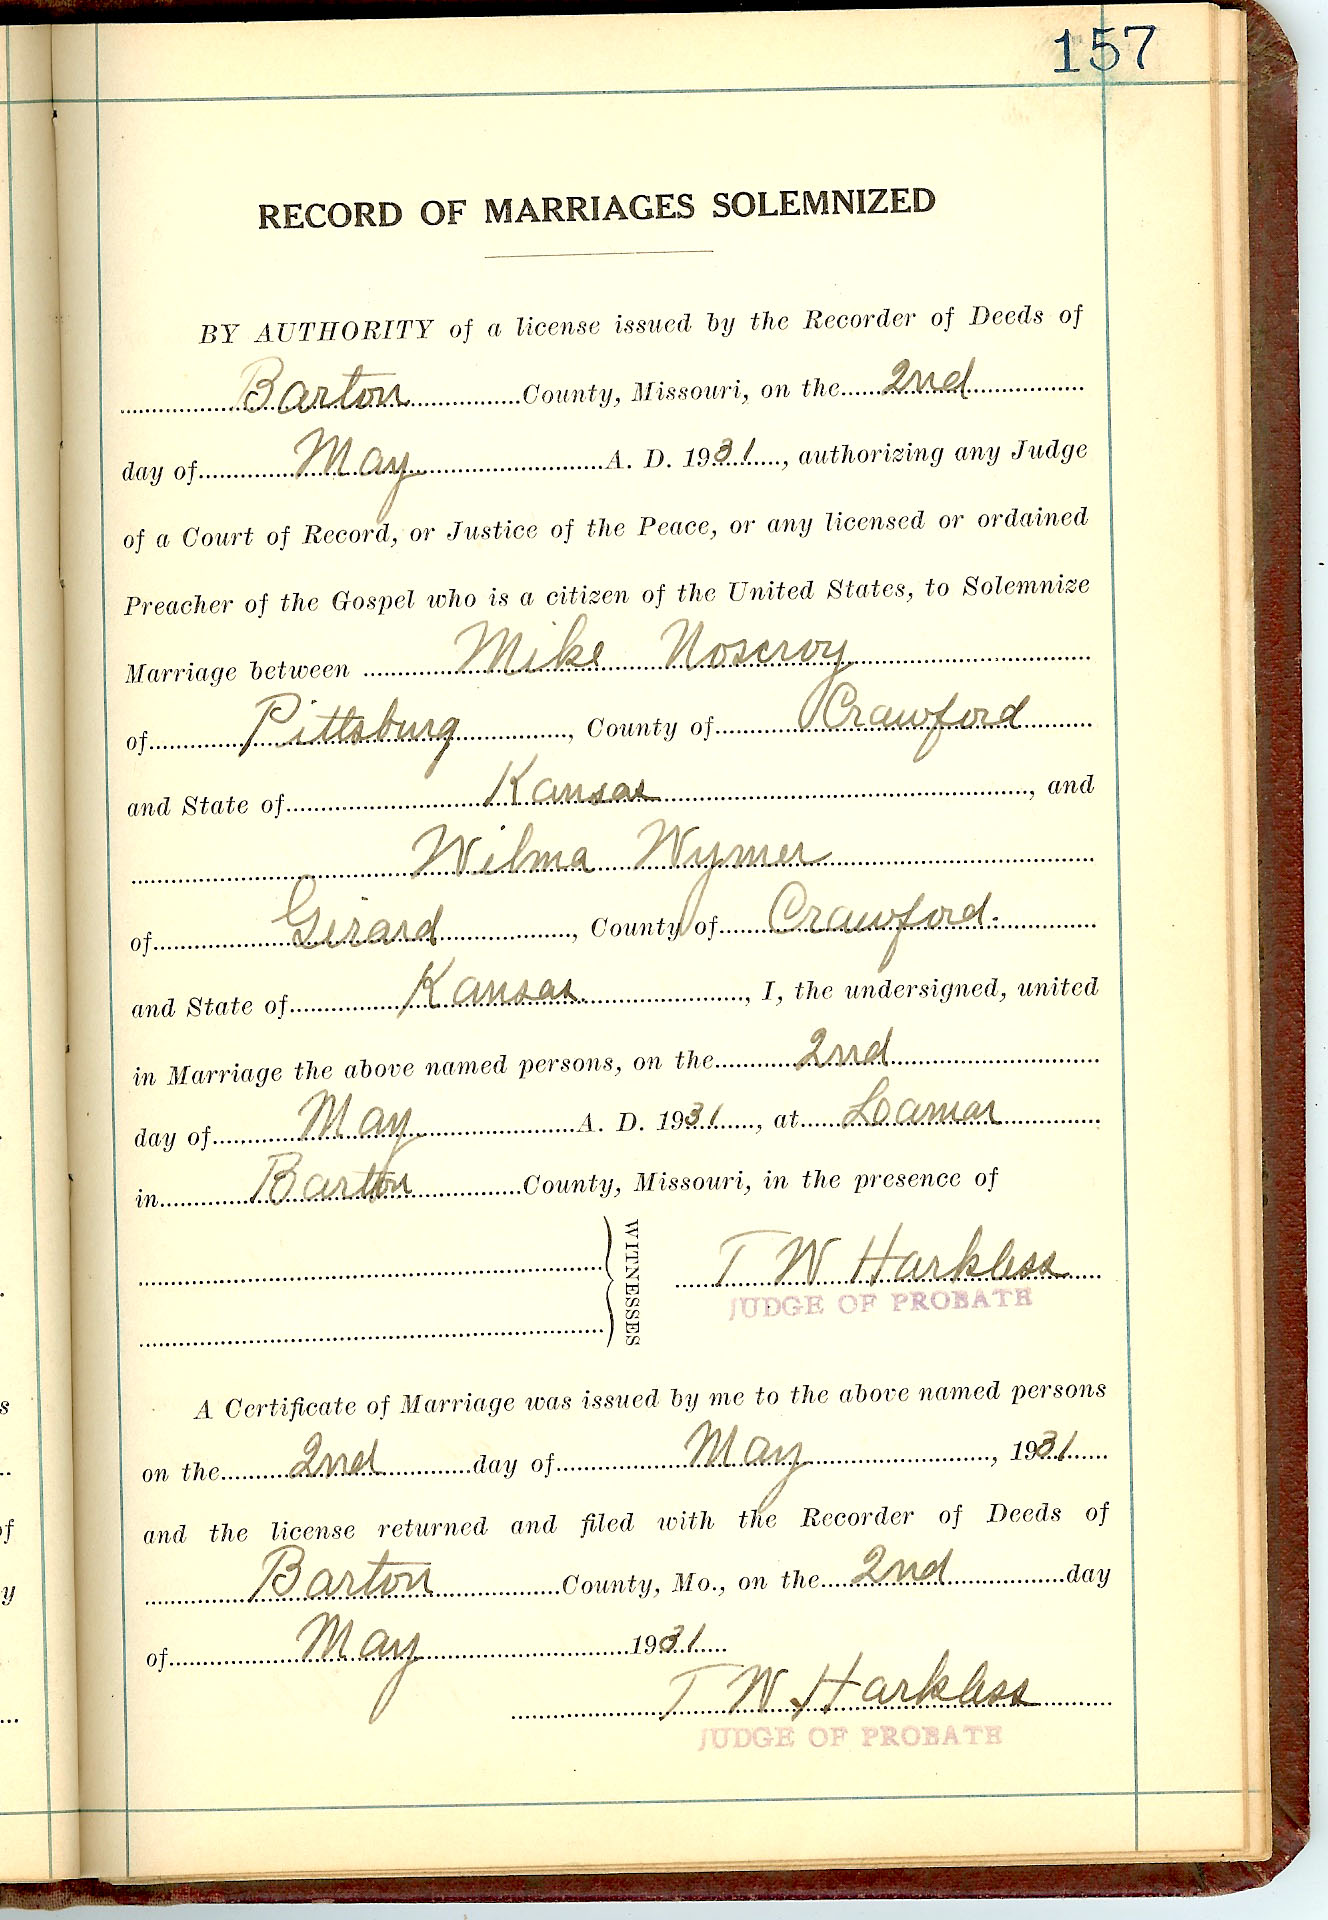 157
RECORD OF MARRIAGES SOLEMNIZED
BY AUTHORITY of a license issued by the Recorder of Deeds of
Barton County, Missouri, on the 2nd
day of May A. D. 1931, authorizing any Judge
of a Court of Record, or Justice of the Peace, or any licensed or ordained
Preacher of the Gospel who is a citizen of the United States, to Solemnize
Marriage between Mike Noscroy
of Pittsburg, County of Crawford
and State of Kansas, and
Wilma Wymer
of Girard, County of Crawford.
and State of Kansas, I, the undersigned, united
in Marriage the above named persons, on the 2nd
day of May A. D. 1931, at Lamar
in Barton County, Missouri, in the presence of
WITNESSES
T W Harkless
JUDGE OF PROBATE
A Certificate of Marriage was issued by me to the above named persons
on the 2nd day of May, 1931
and the license returned and filed with the Recorder of Deeds of
Barton County, Mo., on the 2nd day
of May 1931
T W Harkless
JUDGE OF PROBATE